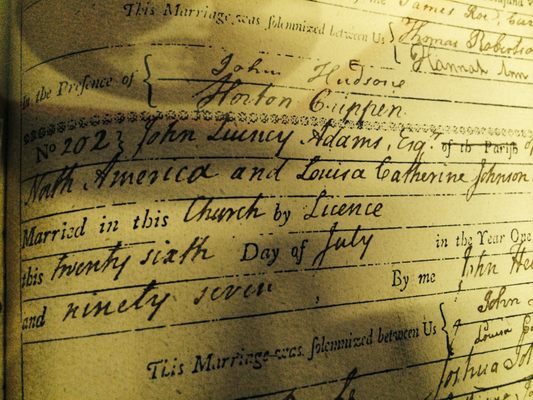 James Row, Cur
This Marriage was solemnized between Us { Thomas Robertson
Hannah Ann
In the Presence of { John Hudson
Horton Cuippen
No 202 } John Quincy Adams, Esq. of th Parish of
North America and Louisa Catherine Johnson
Married in this Church by Licence
this twenty sixth Day of July in the Year One
and ninety seven By me John He
This Marriage was solemnized between Us { John
Louisa
Joshua Jo